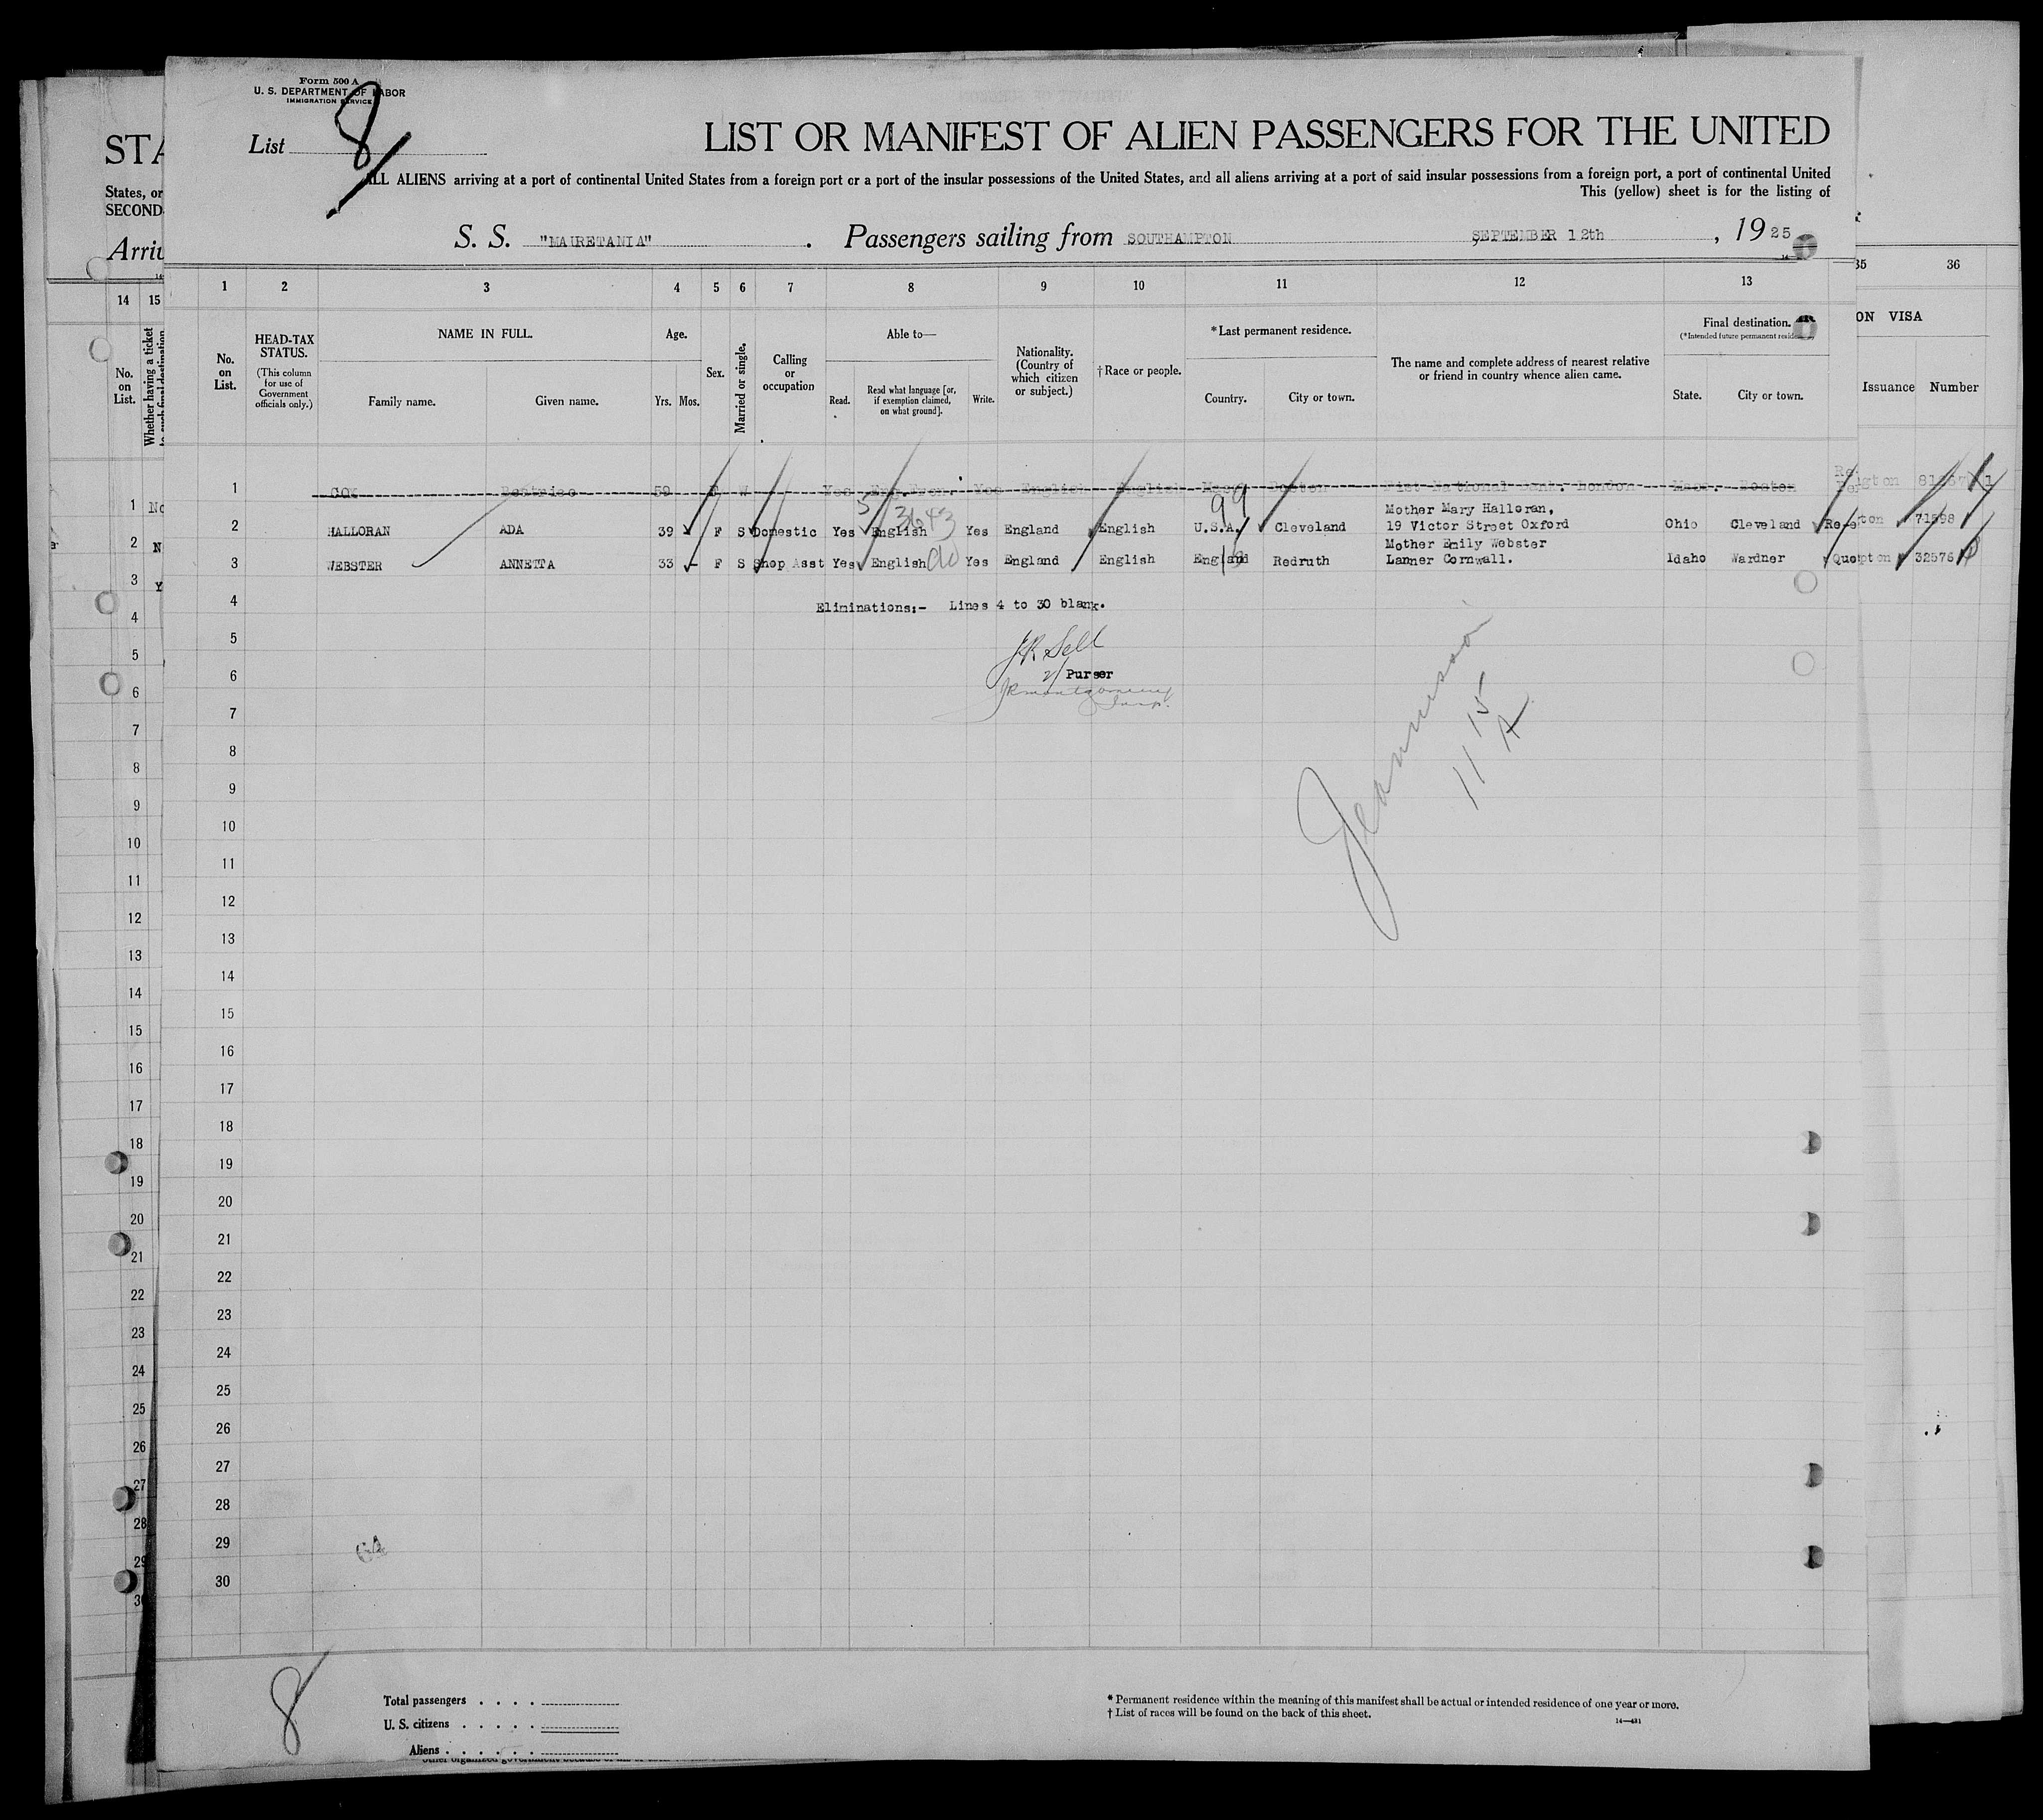 Form 500 A
U. S. DEPARTMENT OF LABOR
IMMIGRATION SERVICE
List 8
LIST OR MANIFEST OF ALIEN PASSENGERS FOR THE UNITED
ALL ALIENS arriving at a port of continental United States from a foreign port or a port of the insular possessions of the United States, and all aliens arriving at a port of said insular possessions from a foreign port, a port of continental United
This (yellow) sheet is for the listing of
S. S. "MAURETANIA" . Passengers sailing from SOUTHAMPTON SEPTEMBER 12th , 1925
STA
States, or
SECOND
Arriv
1 2 3 4 5 6 7 8 9 10 11 12 13
14 15
35 36
No. on List.
HEAD-TAX STATUS.
(This column for use of Government officials only.)
NAME IN FULL.
Family name. Given name.
Age.
Yrs. Mos.
Sex.
Married or single.
Calling or occupation
Able to—
Read. Read what language [or, if exemption claimed, on what ground]. Write.
Nationality. (Country of which citizen or subject.)
†Race or people.
*Last permanent residence.
Country. City or town.
The name and complete address of nearest relative or friend in country whence alien came.
Final destination.
(*Intended future permanent
State. City or town.
ON VISA
Issuance Number
No. on List.
Whether having a ticket
1 COX Beatrice 59 F W Yes Yes English English Mass Boston National London Mass. Boston
99
5 3643
2 HALLORAN ADA 39 F S Domestic Yes English Yes England English U.S.A. Cleveland Mother Mary Halloran, 19 Victor Street Oxford Ohio Cleveland 71598
3 WEBSTER ANNETTA 33 F S Shop Asst Yes English Yes England English England Redruth Mother Emily Webster Lanner Cornwall. Idaho Wardner 32576
4 Eliminations:- Lines 4 to 30 blank.
5 JR Sell
6 2/ Purser
JR Montgomery
Insp.
7
8
9
10
11
12
13
14
15
16
17
18
19
20
21
22
23
24
25
26
27
28
29
30
11 15 A
8
Total passengers . . . .
U. S. citizens . . . . .
Aliens . . . . . .
* Permanent residence within the meaning of this manifest shall be actual or intended residence of one year or more.
† List of races will be found on the back of this sheet.
14—431